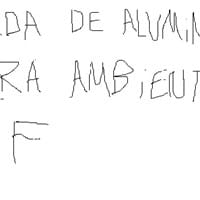 DA DE ALUMIN
RA AMBIENT
F